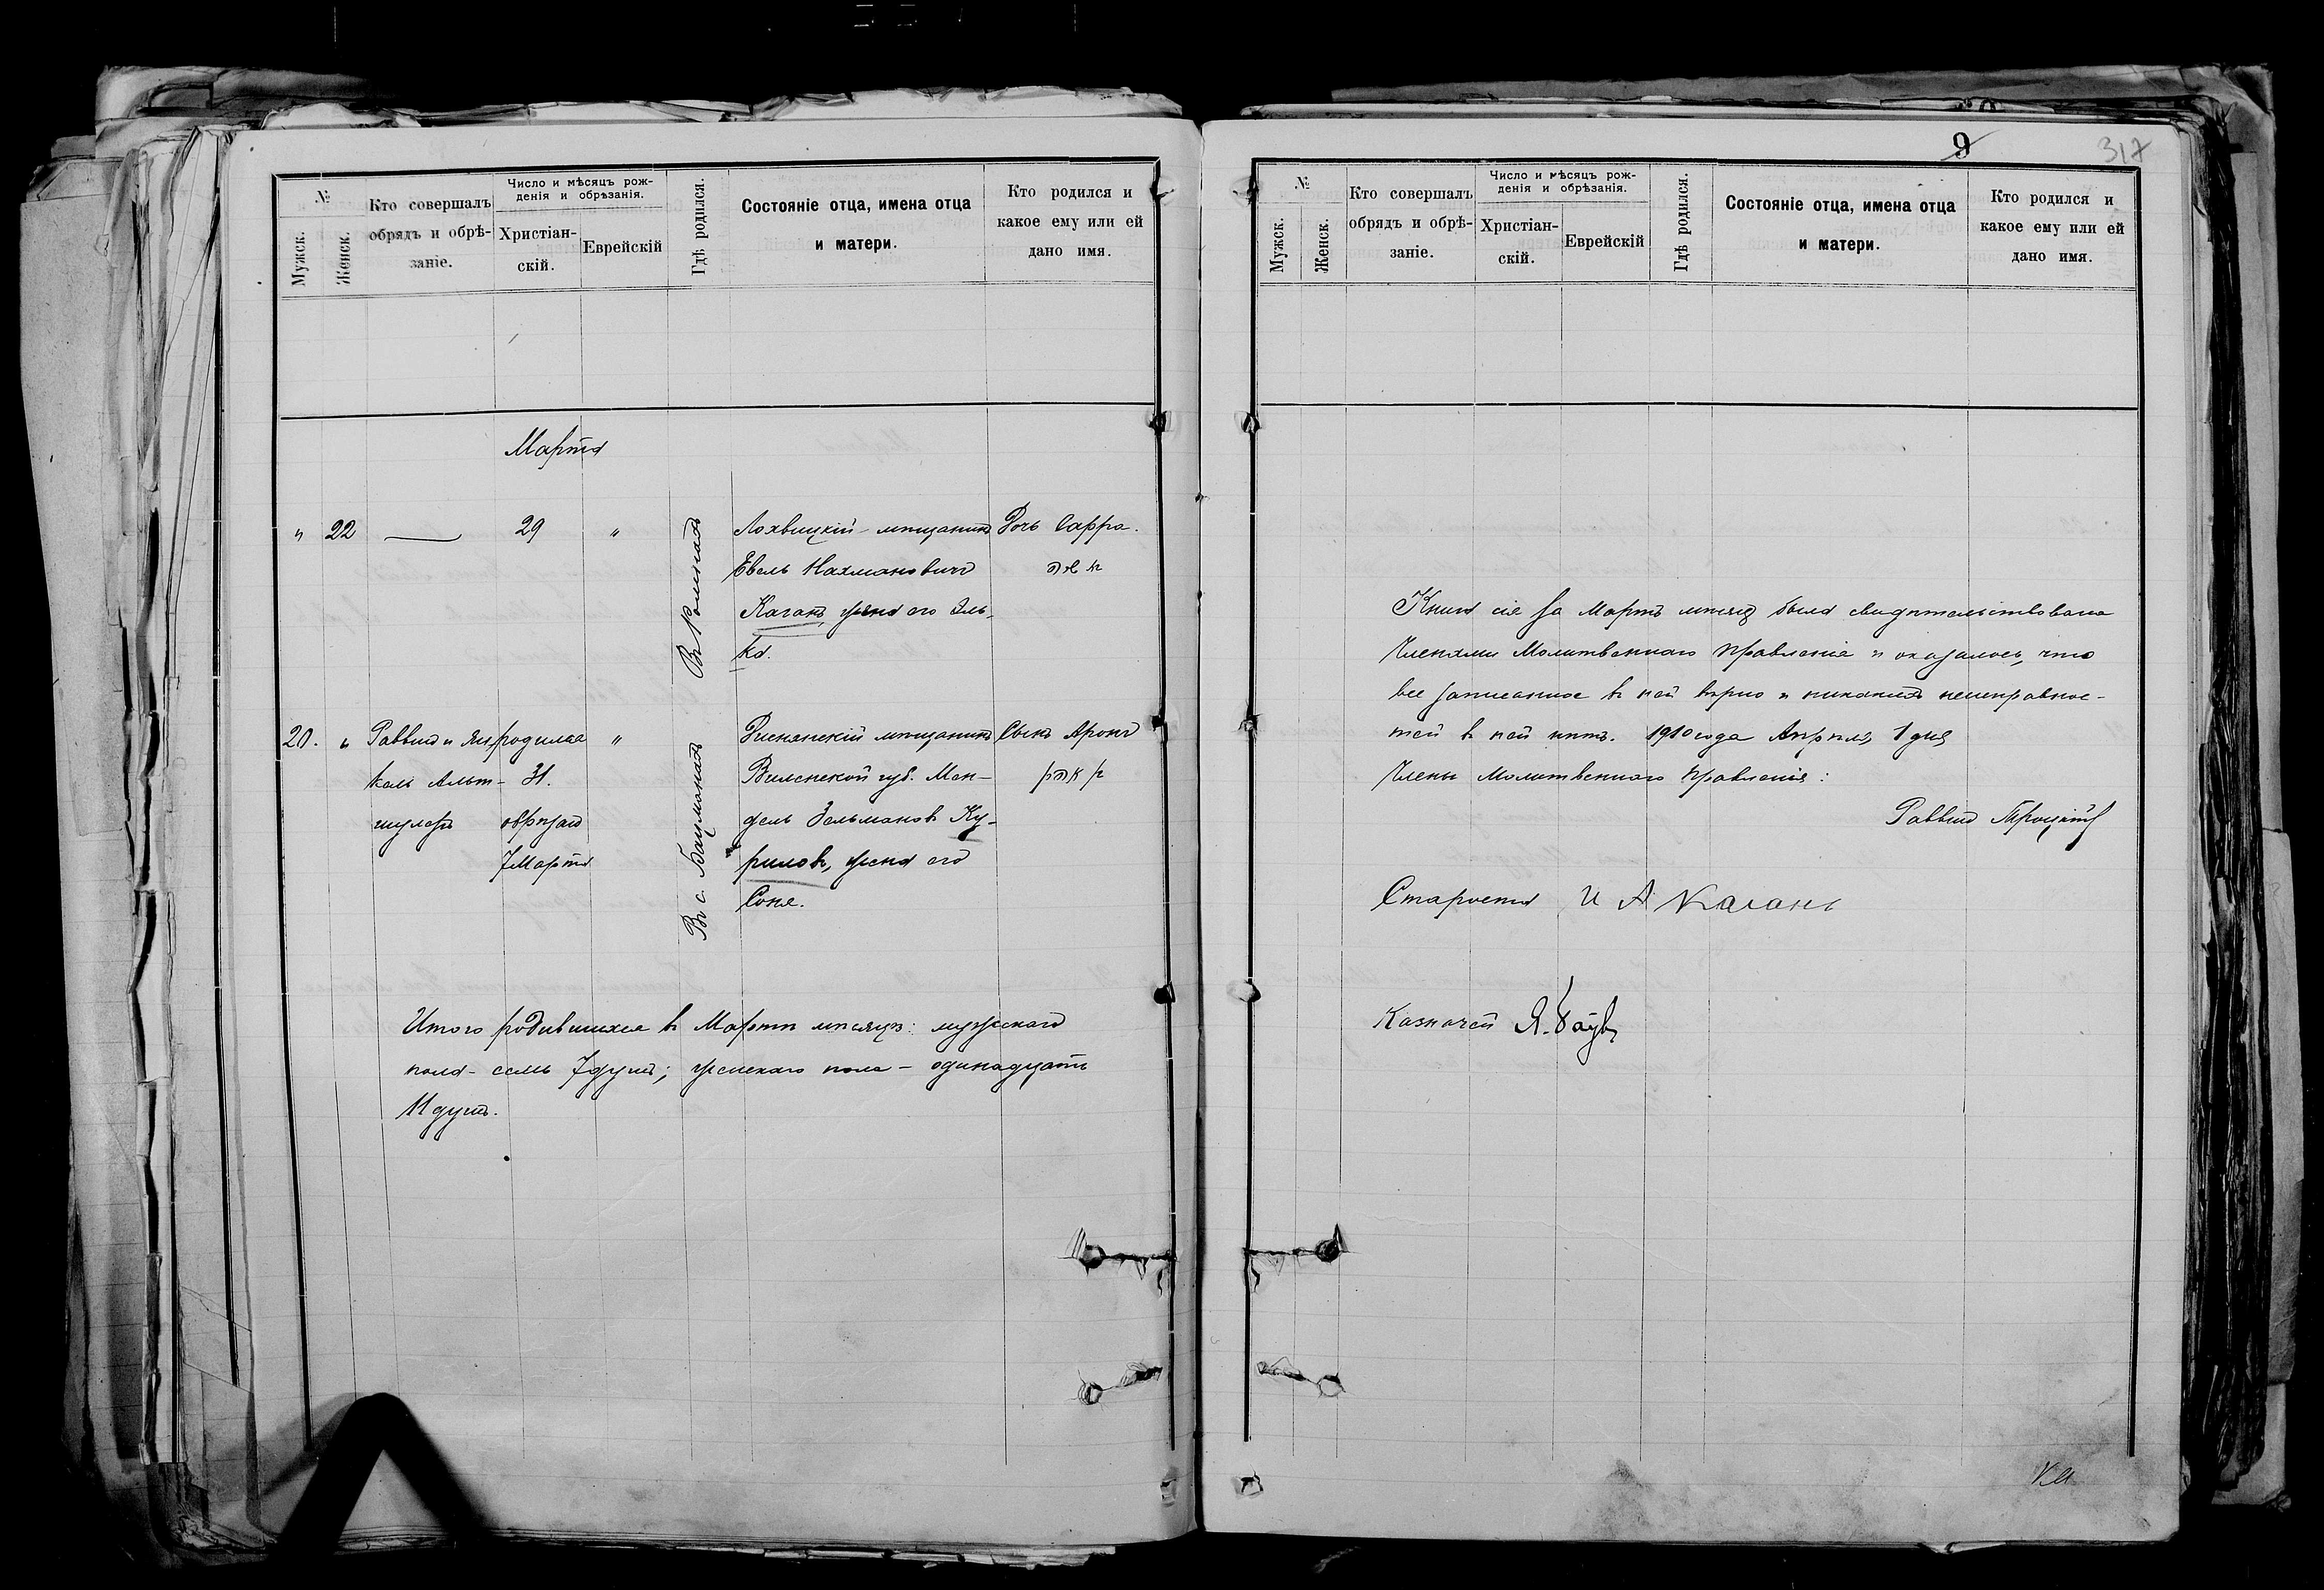 №
Мужск.
Женск.
Кто совершалъ
обрядъ и обрѣ-
заніе.
Число и мѣсяцъ рож-
денія и обрѣзанія.
Христіан-
скій.
Еврейскій
Гдѣ родился.
Состояніе отца, имена отца
и матери.
Кто родился и
какое ему или ей
дано имя.
Марта
" 22 — 29 "
Въ Ромнахъ
Лохвицкій мѣщанинъ
Евель Нахмановичъ
Каганъ, жена его Эль-
ка.
Дочь Сарра.
שרה
20. "
Раввинъ и Ян-
кель Альт-
шулеръ
родился
31.
обрѣзан
7 Марта
"
Въ с. Бацманахъ
Диснянскій мѣщанинъ
Виленской губ. Мен-
дель Зельмановъ Ку-
риловъ, жена его
Соня.
Сынъ Аронъ
אהרן
Итого родившихся въ Мартѣ мѣсяцѣ: мужскаго
пола - семь 7 душъ; женскаго пола - одинадцать
11 душъ.
9
317
№
Мужск.
Женск.
Кто совершалъ
обрядъ и обрѣ-
заніе.
Число и мѣсяцъ рож-
денія и обрѣзанія.
Христіан-
скій.
Еврейскій
Гдѣ родился.
Состояніе отца, имена отца
и матери.
Кто родился и
какое ему или ей
дано имя.
Книга сія за Мартъ мѣсяцъ была свидѣтельствована
Членами Молитвеннаго Правленія и оказалось, что
все записанное въ ней вѣрно и никакихъ неисправнос-
тей въ ней нѣтъ. 1910 года Апрѣля 1 дня
Члены Молитвеннаго Правленія:
Раввинъ
Староста И А Каганъ
Казначей Я.